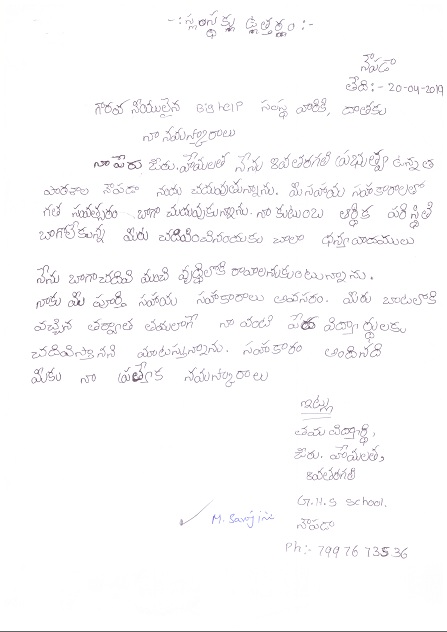 -: సంస్థకు ఉత్తరం :-
నౌపడా
తేది :- 20-04-2019
గౌరవనీయులైన Big help సంస్థ వారికి, దాతకు
నా నమస్కారాలు
నా పేరు ఓరు. హేమలత నేను 8వతరగతి ప్రభుత్వ ఉన్నత
పాఠశాల నౌపడా నందు చదువుచున్నాను. మీ సహాయ సహకారాలతో
గత సంవత్సరం బాగా చదువుకున్నాను. నా కుటుంబ ఆర్థిక పరిస్థితి
బాగాలేకున్న మీరు చదివించినందుకు చాలా ధన్యవాదములు
నేను బాగాచదివి మంచి వృద్ధిలోకి రావాలనుకుంటున్నాను.
నాకు మీ పూర్తి సహాయ సహకారాలు అవసరం. మీరు బాటలోకి
వచ్చిన తర్వాత తమలాగే నా వంటి పేద విద్యార్థులకు
చదివిస్తానని మాటిస్తున్నాను. సహకారం అందించి
మీకు నా ప్రత్యేక నమస్కారాలు
ఇట్లు
తమ విద్యార్థి,
ఓరు. హేమలత,
8వతరగతి
G.H.S School.
నౌపడా
M. Sarojini
Ph:- 79976 73536